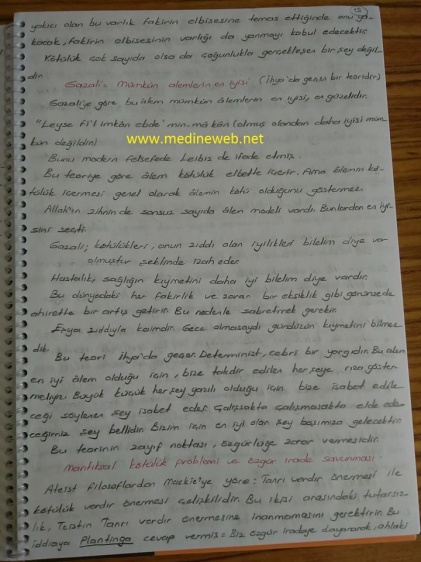 15
yakıcı olan bu varlık fakirin elbisesine temas ettiğinde onu ya-
kacak, fakirin elbisesinin varlığı da yanmayı kabul edecektir.
Kötülük çok sayıda olsa da çoğunlukla gerçekleşen bir şey değil-
dir.
Gazali - Mümkün alemlerin en iyisi (İhya'da geçen bir teoridir)
Gazali'ye göre bu âlem mümkün âlemlerin en iyisi, en güzelidir.
"Leyse fi'l imkân ebde' min mâ kân (olmuş olandan daha iyisi müm-
kün değildir)
www.medineweb.net
Bunu modern felsefede Leibiz de ifade etmiş.
Bu teoriye göre âlem kötülük elbette içerir. Ama âlemin kö-
tülük içermesi genel olarak âlemin kötü olduğunu göstermez.
Allah'ın zihninde sonsuz sayıda âlem modeli vardı. Bunlardan en iyi-
sini seçti.
Gazali; kötülükleri, onun zıddı olan iyilikleri bilelim diye var
olmuştur şeklinde izah eder.
Hastalık; sağlığın kıymetini daha iyi bilelim diye vardır.
Bu dünyadaki her fakirlik ve zarar bir eksiklik gibi görünse de
ahirette bir artış getirir. Bu nedenle sabretmek gerekir.
Eşya zıddıyla kaimdir. Gece olmasaydı gündüzün kıymetini bilmez-
dik.
Bu teori ihya'da geçer. Determinist, cebri bir yargıdır. Bu alem
en iyi âlem olduğu için, bize takdir edilen her şeye rıza göster-
meliyiz. Büyük küçük her şey yazılı olduğu için bize isabet edile-
ceği söylenen şey isabet eder. Çalışsakta çalışmasakta elde ede-
ceğimiz şey bellidir. Bizim için en iyi olan şey başımıza gelecektir.
Bu teorinin zayıf noktası, özgürlüğe zarar vermesidir.
Mantıksal kötülük problemi ve özgür irade savunması:
Ateist filozoflardan Mackie'ye göre: Tanrı vardır önermesi ile
kötülük vardır önermesi çelişkilidir. Bu ikisi arasındaki tutarsız-
lık, Teistin Tanrı vardır önermesine inanmamasını gerektirir. Bu
iddiaya Plantinga cevap vermiş: Biz özgür iradeye dayanarak, ahlaki